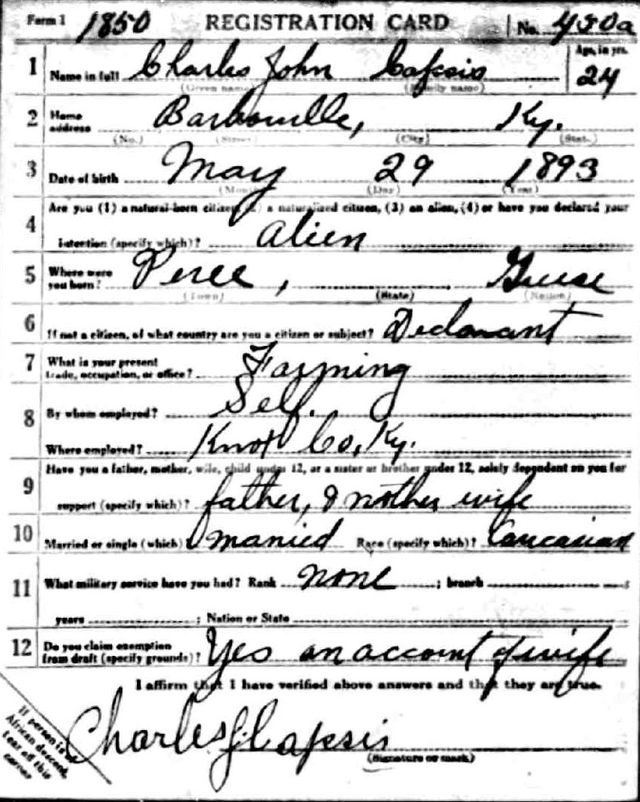 Form 1 1850 REGISTRATION CARD No. 430a
1 Name in full Charles John Capsis Age, in yrs. 24
(Given name) (Family name)
2 Home address Barbourville, Ky.
(No.) (Street) (City) (State)
3 Date of birth May 29 1893
(Month) (Day) (Year)
4 Are you (1) a natural-born citizen, (2) a naturalized citizen, (3) an alien, (4) or have you declared your
intention (specify which)? alien
5 Where were you born? , Greese
(Town) (State) (Nation)
6 If not a citizen, of what country are you a citizen or subject? Declarant
7 What is your present trade, occupation, or office? Farming
8 By whom employed? Self.
Where employed? Knox Co, Ky.
9 Have you a father, mother, wife, child under 12, or a sister or brother under 12, solely dependent on you for
support (specify which)? father, & mother wife
10 Married or single (which) married Race (specify which)? Caucasian
11 What military service have you had? Rank none ; branch
years ; Nation or State
12 Do you claim exemption from draft (specify grounds)? Yes on account of wife
I affirm that I have verified above answers and that they are true.
Charles J. Capsis
(Signature or mark)
If person is of
African descent,
tear off this
corner